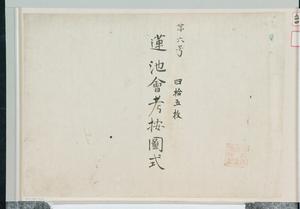 第六号
四拾五枚
蓮池會考按圖式